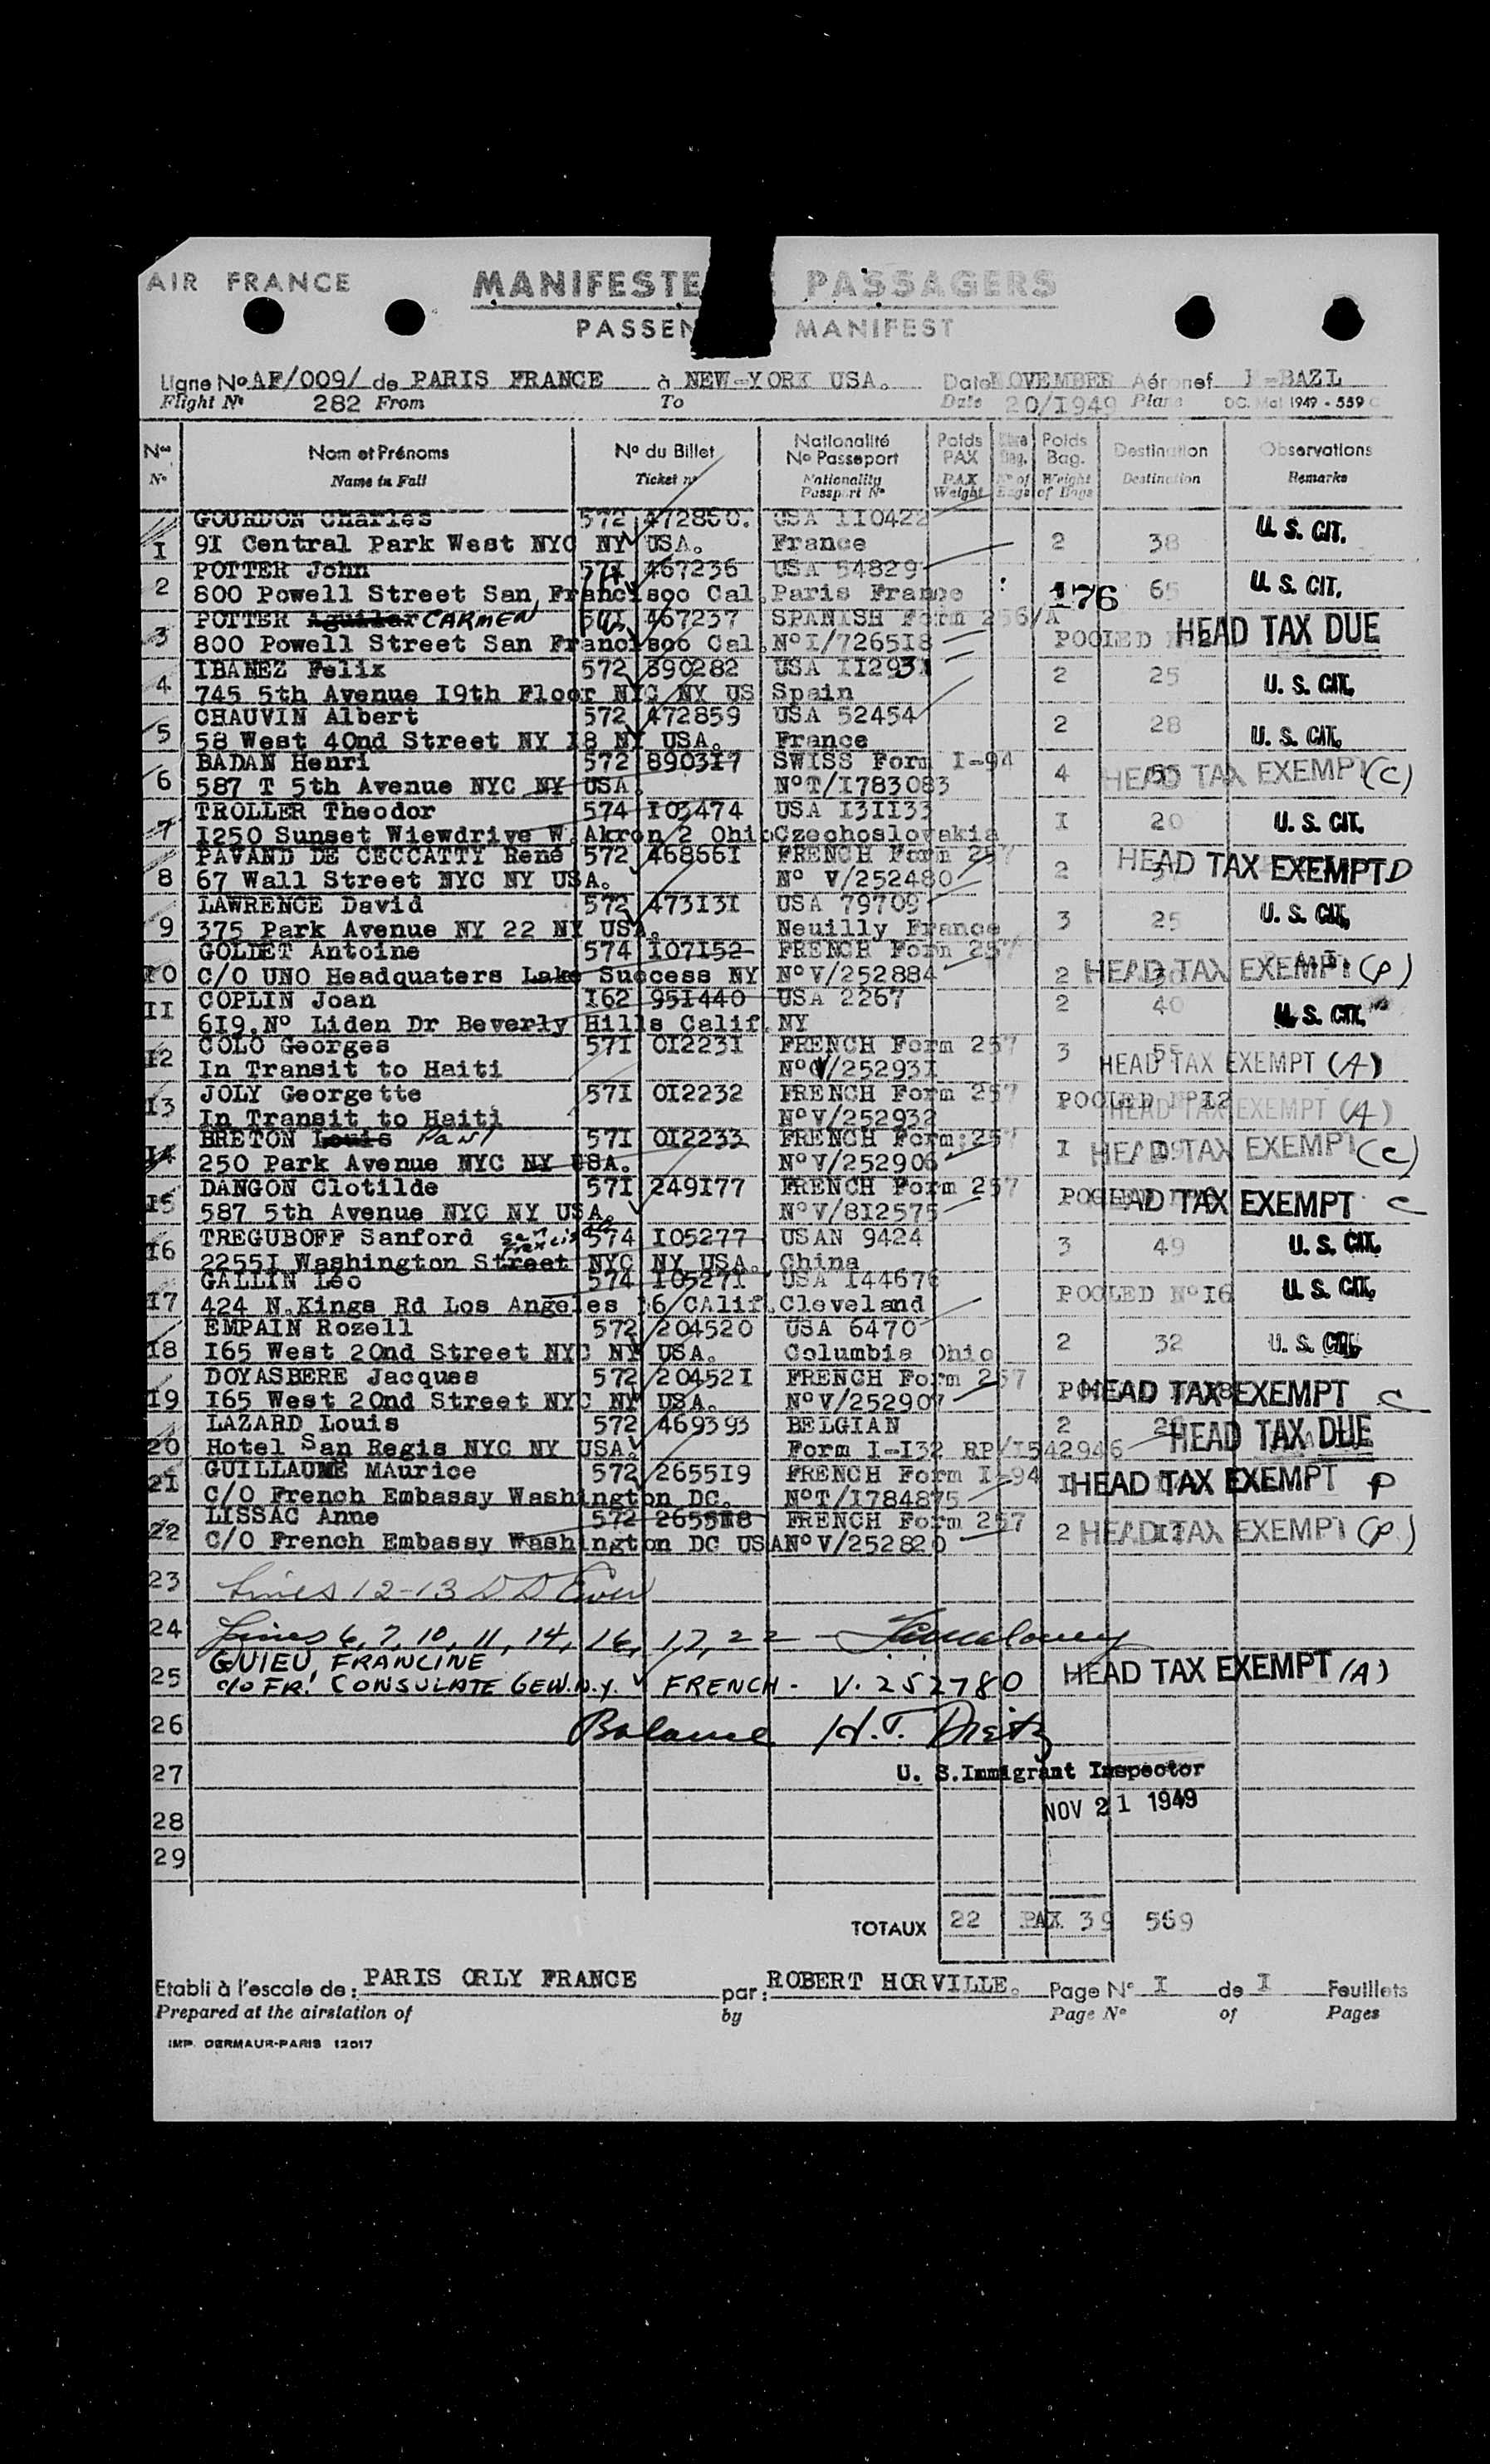 AIR FRANCE
MANIFESTE PASSAGERS
PASSEN MANIFEST
Ligne No AF/009/ de PARIS FRANCE à NEW-YORK USA. Date NOVEMBER Aéronef -BAZL
Flight No 282 From To Date 20/I949 Plane DC. Mai 1949 - 559
Nos Nom et Prénoms No du Billet Nationalité Poids Poids Destination Observations
No Passeport PAX Bag.
No Name in Full Ticket no Nationality PAX No of Weight Destination Remarks
Passport No Weight Bags of Bags
GOURDON Charles 572 472860. USA II0422
I 9I Central Park West NYC NY USA. France 2 38 U. S. CIT.
POTTER John 57I 467236 USA 54829
2 800 Powell Street San Francisoo Cal. Paris France 176 65 U. S. CIT.
POTTER Aguilar CARMEN 57I 467237 SPANISH Form 256/A
3 800 Powell Street San Francisoo Cal. NoI/7265I8 POOLED HEAD TAX DUE
IBANEZ Felix 572 890282 USA II293I
4 745 5th Avenue I9th Floor NYC NY US Spain 2 25 U. S. CIT.
CHAUVIN Albert 572 472859 USA 52454
5 58 West 40nd Street NY I8 NY USA. France 2 28 U. S. CIT.
BADAN Henri 572 8903I7 SWISS Form I-94
6 587 T 5th Avenue NYC NY USA. NoT/I783083 4 55 HEAD TAX EXEMPT (C)
TROLLER Theodor 574 I03474 USA I3II33
7 I250 Sunset Wiewdrive W. Akron 2 Ohio Czechoslovakia I 20 U. S. CIT.
PAVAND DE CECCATTY René 572 46866I FRENCH Form 257
8 67 Wall Street NYC NY USA. No V/252480 2 HEAD TAX EXEMPT D
LAWRENCE David 572 473I3I USA 79709
9 375 Park Avenue NY 22 NY USA. Neuilly France 3 25 U. S. CIT.
GOLIET Antoine 574 I07I52 FRENCH Form 257
I0 C/O UNO Headquaters Lake Success NY NoV/252884 2 30 HEAD TAX EXEMPT (P)
COPLIN Joan I62 95I440 USA 2267 2 40
II 6I9.No Liden Dr Beverly Hills Calif. NY U. S. CIT.
COLO Georges 57I 0I223I FRENCH Form 257 3 55
I2 In Transit to Haiti NoV/25293I HEAD TAX EXEMPT (A)
JOLY Georgette 57I 0I2232 FRENCH Form 257
I3 In Transit to Haiti NoV/252932 POOLED NoI2 HEAD TAX EXEMPT (A)
BRETON Louis Paul 57I 0I2233 FRENCH Form 257
I4 250 Park Avenue NYC NY USA. NoV/252906 I HEAD TAX EXEMPT (C)
DANGON Clotilde 57I 249I77 FRENCH Form 257
I5 587 5th Avenue NYC NY USA. NoV/8I2575 HEAD TAX EXEMPT C
TREGUBOFF Sanford San Francisco 574 I05277 USAN 9424
I6 2255I Washington Street NYC NY USA. China 3 49 U. S. CIT.
GALLIN Léo 574 I0527I USA I44676
I7 424 N.Kings Rd Los Angeles 36 CAlif. Cleveland POOLED NoI6 U. S. CIT.
EMPAIN Rozell 572 204520 USA 6470
I8 I65 West 20nd Street NYC NY USA. Columbia Ohio 2 32 U. S. CIT.
DOYASBERE Jacques 572 20452I FRENCH Form 257
I9 I65 West 20nd Street NYC NY USA. NoV/252907 HEAD TAX EXEMPT C
LAZARD Louis 572 469393 BELGIAN 2
20 Hotel San Regis NYC NY USA. Form I-I32 RP/I542946 HEAD TAX DUE
GUILLAUME MAurice 572 2655I9 FRENCH Form I-94
2I C/O French Embassy Washington DC. NoT/I784875 HEAD TAX EXEMPT P
LISSAC Anne 572 2655I8 FRENCH Form 257
22 C/O French Embassy Washington DC USA NoV/252820 2 I7 HEAD TAX EXEMPT (P.)
23 Lines 12-13 D D
24 Lines 6, 7, 10, 11, 14, 16, 17, 22
GUIEU, FRANCINE
25 c/o FR. CONSULATE GEN. N.Y. FRENCH - V. 252780 HEAD TAX EXEMPT (A)
26 Balance H.T. Dietz
27 U. S. Immigrant Inspector
28 NOV 21 1949
29
TOTAUX 22 PAX 39 569
Etabli à l'escale de: PARIS ORLY FRANCE par: ROBERT HORVILLE. Page No I de I Feuillets
Prepared at the airstation of by Page No of Pages
IMP. DERMAUR-PARIS 12017